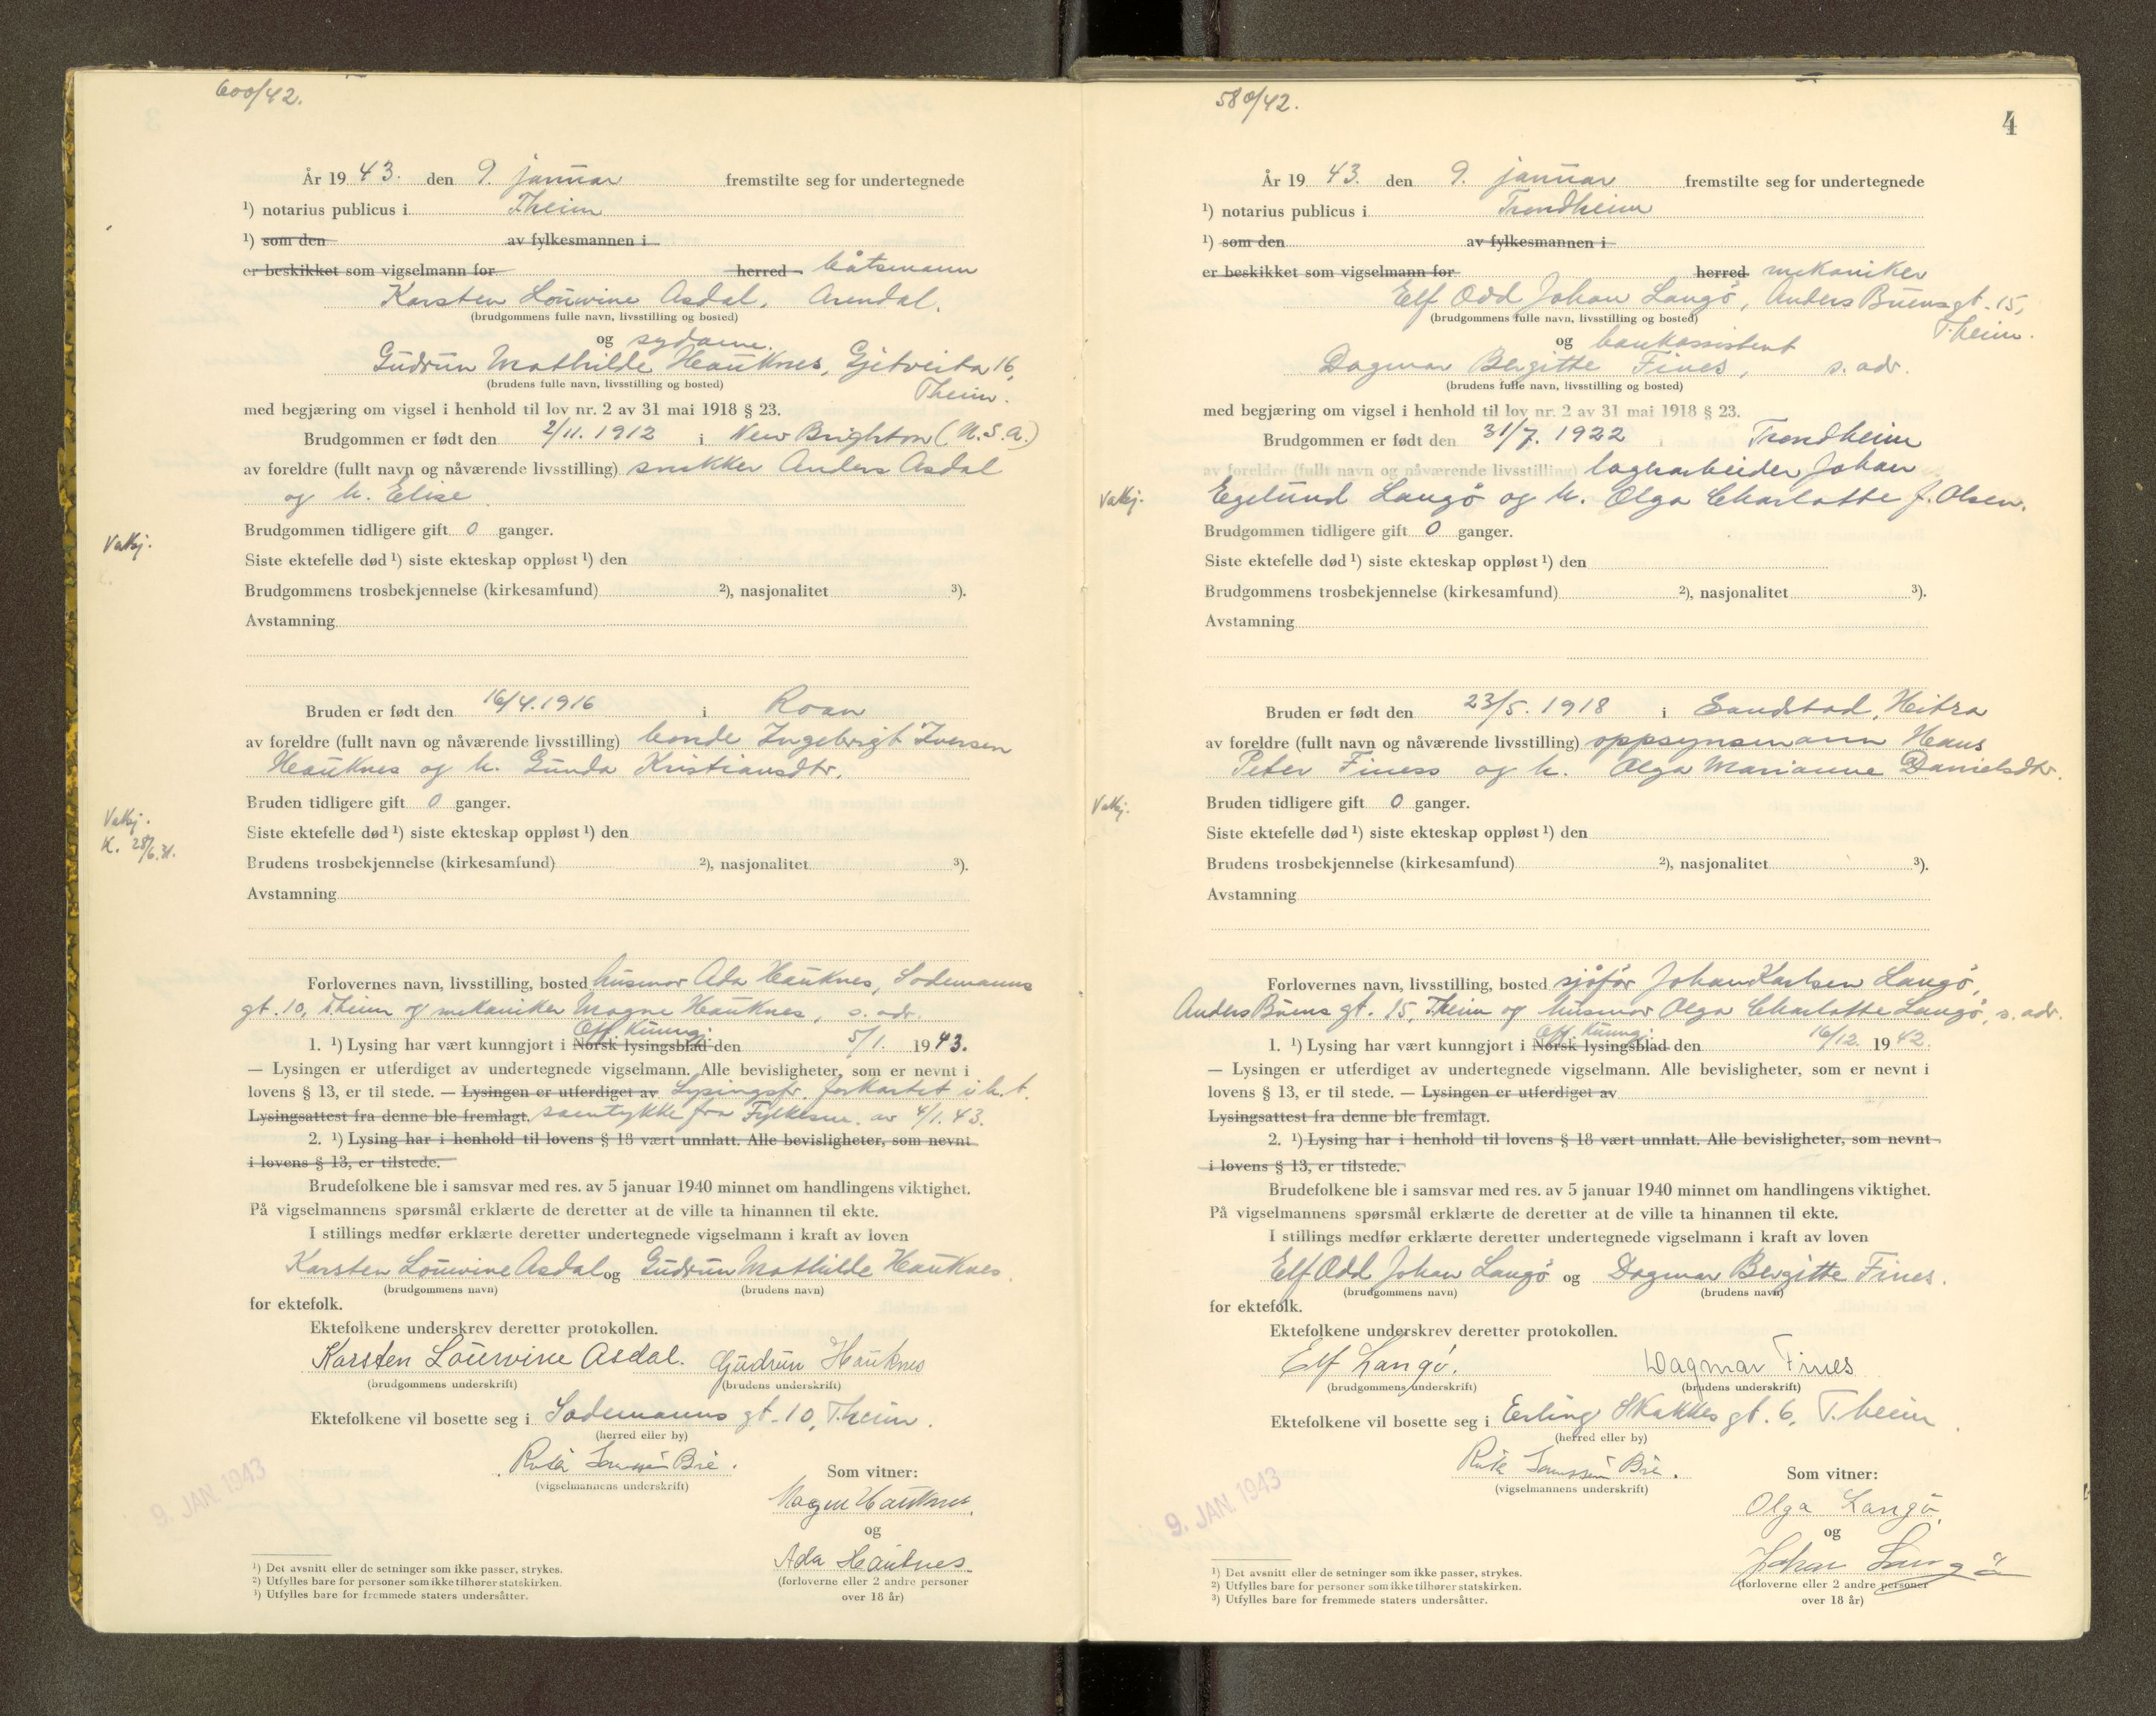 600/42.
År 19 43. den 9. januar fremstilte seg for undertegnede
¹) notarius publicus i Theim
¹) som den av fylkesmannen i
er beskikket som vigselmann for herred båtsmann
Karsten Louwine Asdal, Arendal.
(brudgommens fulle navn, livsstilling og bosted)
og sydame
Gudrun Mathilde Hauknes, Gjetveita 16,
(brudens fulle navn, livsstilling og bosted) Theim.
med begjæring om vigsel i henhold til lov nr. 2 av 31 mai 1918 § 23.
Brudgommen er født den 2/11. 1912 i New Brighton (U.S.A.)
av foreldre (fullt navn og nåværende livsstilling) snekker Anders Asdal
og h. Elise
Brudgommen tidligere gift 0 ganger.
Vakj.
Siste ektefelle død ¹) siste ekteskap oppløst ¹) den
Brudgommens trosbekjennelse (kirkesamfund) ²), nasjonalitet ³).
Avstamning
Bruden er født den 16/4. 1916 i Roan
av foreldre (fullt navn og nåværende livsstilling) bonde Ingebrigt Iversen
Hauknes og h. Gunda Kristiansdtr.
Bruden tidligere gift 0 ganger.
Vakj.
Siste ektefelle død ¹) siste ekteskap oppløst ¹) den
K. 28/6.31.
Brudens trosbekjennelse (kirkesamfund) ²), nasjonalitet ³).
Avstamning
Forlovernes navn, livsstilling, bosted husmor Ada Hauknes, Sodemanns
gt. 10, Theim og mekaniker Magne Hauknes, s. adr.
Off. Kunng:
1. ¹) Lysing har vært kunngjort i Norsk lysingsblad den 5/1. 19 43.
— Lysingen er utferdiget av undertegnede vigselmann. Alle bevisligheter, som er nevnt i
lovens § 13, er til stede. — Lysingen er utferdiget av Lysingsfr. forkortet i h. t.
Lysingsattest fra denne ble fremlagt. samtykke fra Fylkesm. av 4/1. 43.
2. ¹) Lysing har i henhold til lovens § 18 vært unnlatt. Alle bevisligheter, som nevnt
i lovens § 13, er tilstede.
Brudefolkene ble i samsvar med res. av 5 januar 1940 minnet om handlingens viktighet.
På vigselmannens spørsmål erklærte de deretter at de ville ta hinannen til ekte.
I stillings medfør erklærte deretter undertegnede vigselmann i kraft av loven
Karsten Louwine Asdal og Gudrun Mathilde Hauknes.
(brudgommens navn) (brudens navn)
for ektefolk.
Ektefolkene underskrev deretter protokollen.
Karsten Louwine Asdal. Gudrun Hauknes
(brudgommens underskrift) (brudens underskrift)
Ektefolkene vil bosette seg i Sodemanns gt. 10, T.heim.
(herred eller by)
Bie.
(vigselmannens underskrift)
9. JAN. 1943
Som vitner:
Magne Hauknes
og
Ada Hauknes
(forloverne eller 2 andre personer
over 18 år)
¹) Det avsnitt eller de setninger som ikke passer, strykes.
²) Utfylles bare for personer som ikke tilhører statskirken.
³) Utfylles bare for fremmede staters undersåtter.
580/42.
4
År 19 43. den 9. januar fremstilte seg for undertegnede
¹) notarius publicus i Trondheim
¹) som den av fylkesmannen i
er beskikket som vigselmann for herred mekaniker
Elf Odd Johan Langö, Anders Buens gt. 15,
(brudgommens fulle navn, livsstilling og bosted) T.heim.
og bankassistent
Dagmar Bergitte Fines, s. adr.
(brudens fulle navn, livsstilling og bosted)
med begjæring om vigsel i henhold til lov nr. 2 av 31 mai 1918 § 23.
Brudgommen er født den 31/7. 1922 i Trondheim
av foreldre (fullt navn og nåværende livsstilling) lagerarbeider Johan
Vakj.
Egelund Langö og h. Olga Charlotte f. Olsen.
Brudgommen tidligere gift 0 ganger.
Siste ektefelle død ¹) siste ekteskap oppløst ¹) den
Brudgommens trosbekjennelse (kirkesamfund) ²), nasjonalitet ³).
Avstamning
Bruden er født den 23/5. 1918 i Sandstad, Hitra
av foreldre (fullt navn og nåværende livsstilling) oppsynsmann Hans
Peter Finess og h. Olga Marianne Danielsdtr.
Vakj.
Bruden tidligere gift 0 ganger.
Siste ektefelle død ¹) siste ekteskap oppløst ¹) den
Brudens trosbekjennelse (kirkesamfund) ²), nasjonalitet ³).
Avstamning
Forlovernes navn, livsstilling, bosted sjåför Johan Karlsen Langö,
Anders Buens gt. 15, Theim og husmor Olga Charlotte Langö, s. adr.
Off. Kunng:
1. ¹) Lysing har vært kunngjort i Norsk lysingsblad den 16/12. 19 42.
— Lysingen er utferdiget av undertegnede vigselmann. Alle bevisligheter, som er nevnt i
lovens § 13, er til stede. — Lysingen er utferdiget av
Lysingsattest fra denne ble fremlagt.
2. ¹) Lysing har i henhold til lovens § 18 vært unnlatt. Alle bevisligheter, som nevnt
i lovens § 13, er tilstede.
Brudefolkene ble i samsvar med res. av 5 januar 1940 minnet om handlingens viktighet.
På vigselmannens spørsmål erklærte de deretter at de ville ta hinannen til ekte.
I stillings medfør erklærte deretter undertegnede vigselmann i kraft av loven
Elf Odd Johan Langö og Dagmar Bergitte Fines.
(brudgommens navn) (brudens navn)
for ektefolk.
Ektefolkene underskrev deretter protokollen.
Elf Langö. Dagmar Fines
(brudgommens underskrift) (brudens underskrift)
Ektefolkene vil bosette seg i Erling Skakkes gt. 6, T.heim
(herred eller by)
Bie.
(vigselmannens underskrift)
9. JAN. 1943
Som vitner:
Olga Langö
og
Johan Langö
(forloverne eller 2 andre personer
over 18 år)
¹) Det avsnitt eller de setninger som ikke passer, strykes.
²) Utfylles bare for personer som ikke tilhører statskirken.
³) Utfylles bare for fremmede staters undersåtter.